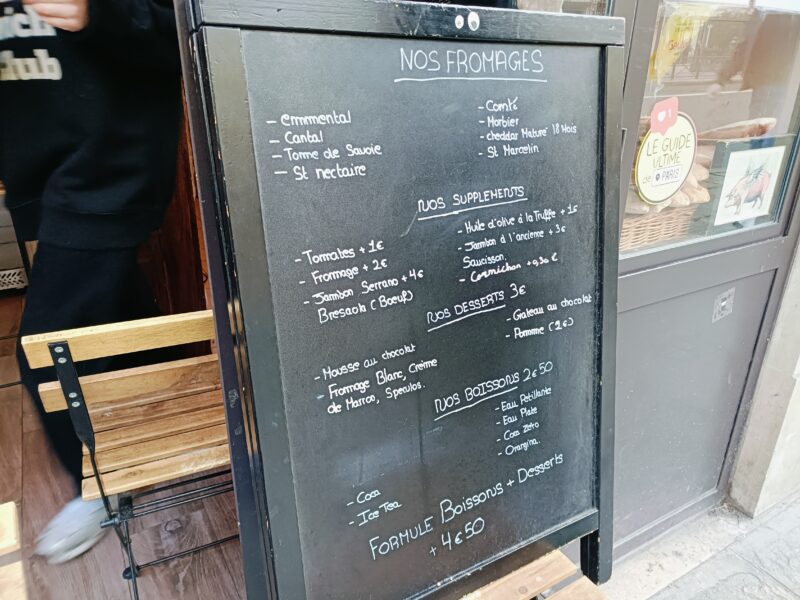 NOS FROMAGES
- emmental
- Cantal
- Tome de Savoie
- St nectaire
- Comté
- Morbier
- cheddar Mature 18 Mois
- St Marcelin
NOS SUPPLEMENTS
- Tomates + 1€
- Fromage + 2€
- Jambon Serrano + 4€
Bresaola (Boeuf)
- Huile d'olive à la Truffe + 1€
- Jambon à l'ancienne + 3€
Saucisson.
- Cornichon + 0,30 €
NOS DESSERTS 3€
- Mousse au chocolat
- Fromage Blanc, Crème
de Marron, Speculos.
- Gateau au chocolat
- Pomme (2€)
NOS BOISSONS 2€50
- Coca
- Ice Tea
- Eau Petillante
- Eau Plate
- Coca Zéro
- Orangina.
FORMULE Boissons + Desserts
+ 4€50
LE GUIDE
ULTIME
de PARIS
1
club